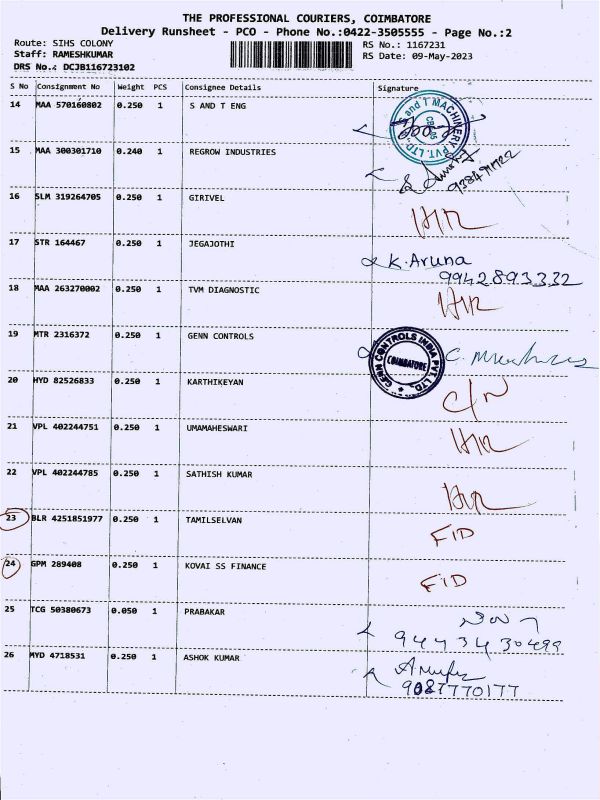 THE PROFESSIONAL COURIERS, COIMBATORE
Delivery Runsheet - PCO - Phone No.:0422-3505555 - Page No.:2
Route: SIHS COLONY RS No.: 1167231
Staff: RAMESHKUMAR RS Date: 09-May-2023
DRS No.: DCJB116723102
S No Consignment No Weight PCS Consignee Details Signature
14 MAA 570160802 0.250 1 S AND T ENG
S and T MACHINERY PVT. LTD.
15 MAA 300301710 0.240 1 REGROW INDUSTRIES
16 SLM 319264705 0.250 1 GIRIVEL
17 STR 164467 0.250 1 JEGAJOTHI K. Aruna
9942893332
18 MAA 263270002 0.250 1 TVM DIAGNOSTIC
19 MTR 2316372 0.250 1 GENN CONTROLS
GENN CONTROLS INDIA PVT. LTD. COIMBATORE
20 HYD 82526833 0.250 1 KARTHIKEYAN C/N
21 VPL 402244751 0.250 1 UMAMAHESWARI
22 VPL 402244785 0.250 1 SATHISH KUMAR
23 BLR 4251851977 0.250 1 TAMILSELVAN FID
24 GPM 289408 0.250 1 KOVAI SS FINANCE FID
25 TCG 50380673 0.050 1 PRABAKAR
9443430499
26 MYD 4718531 0.250 1 ASHOK KUMAR
9087770177